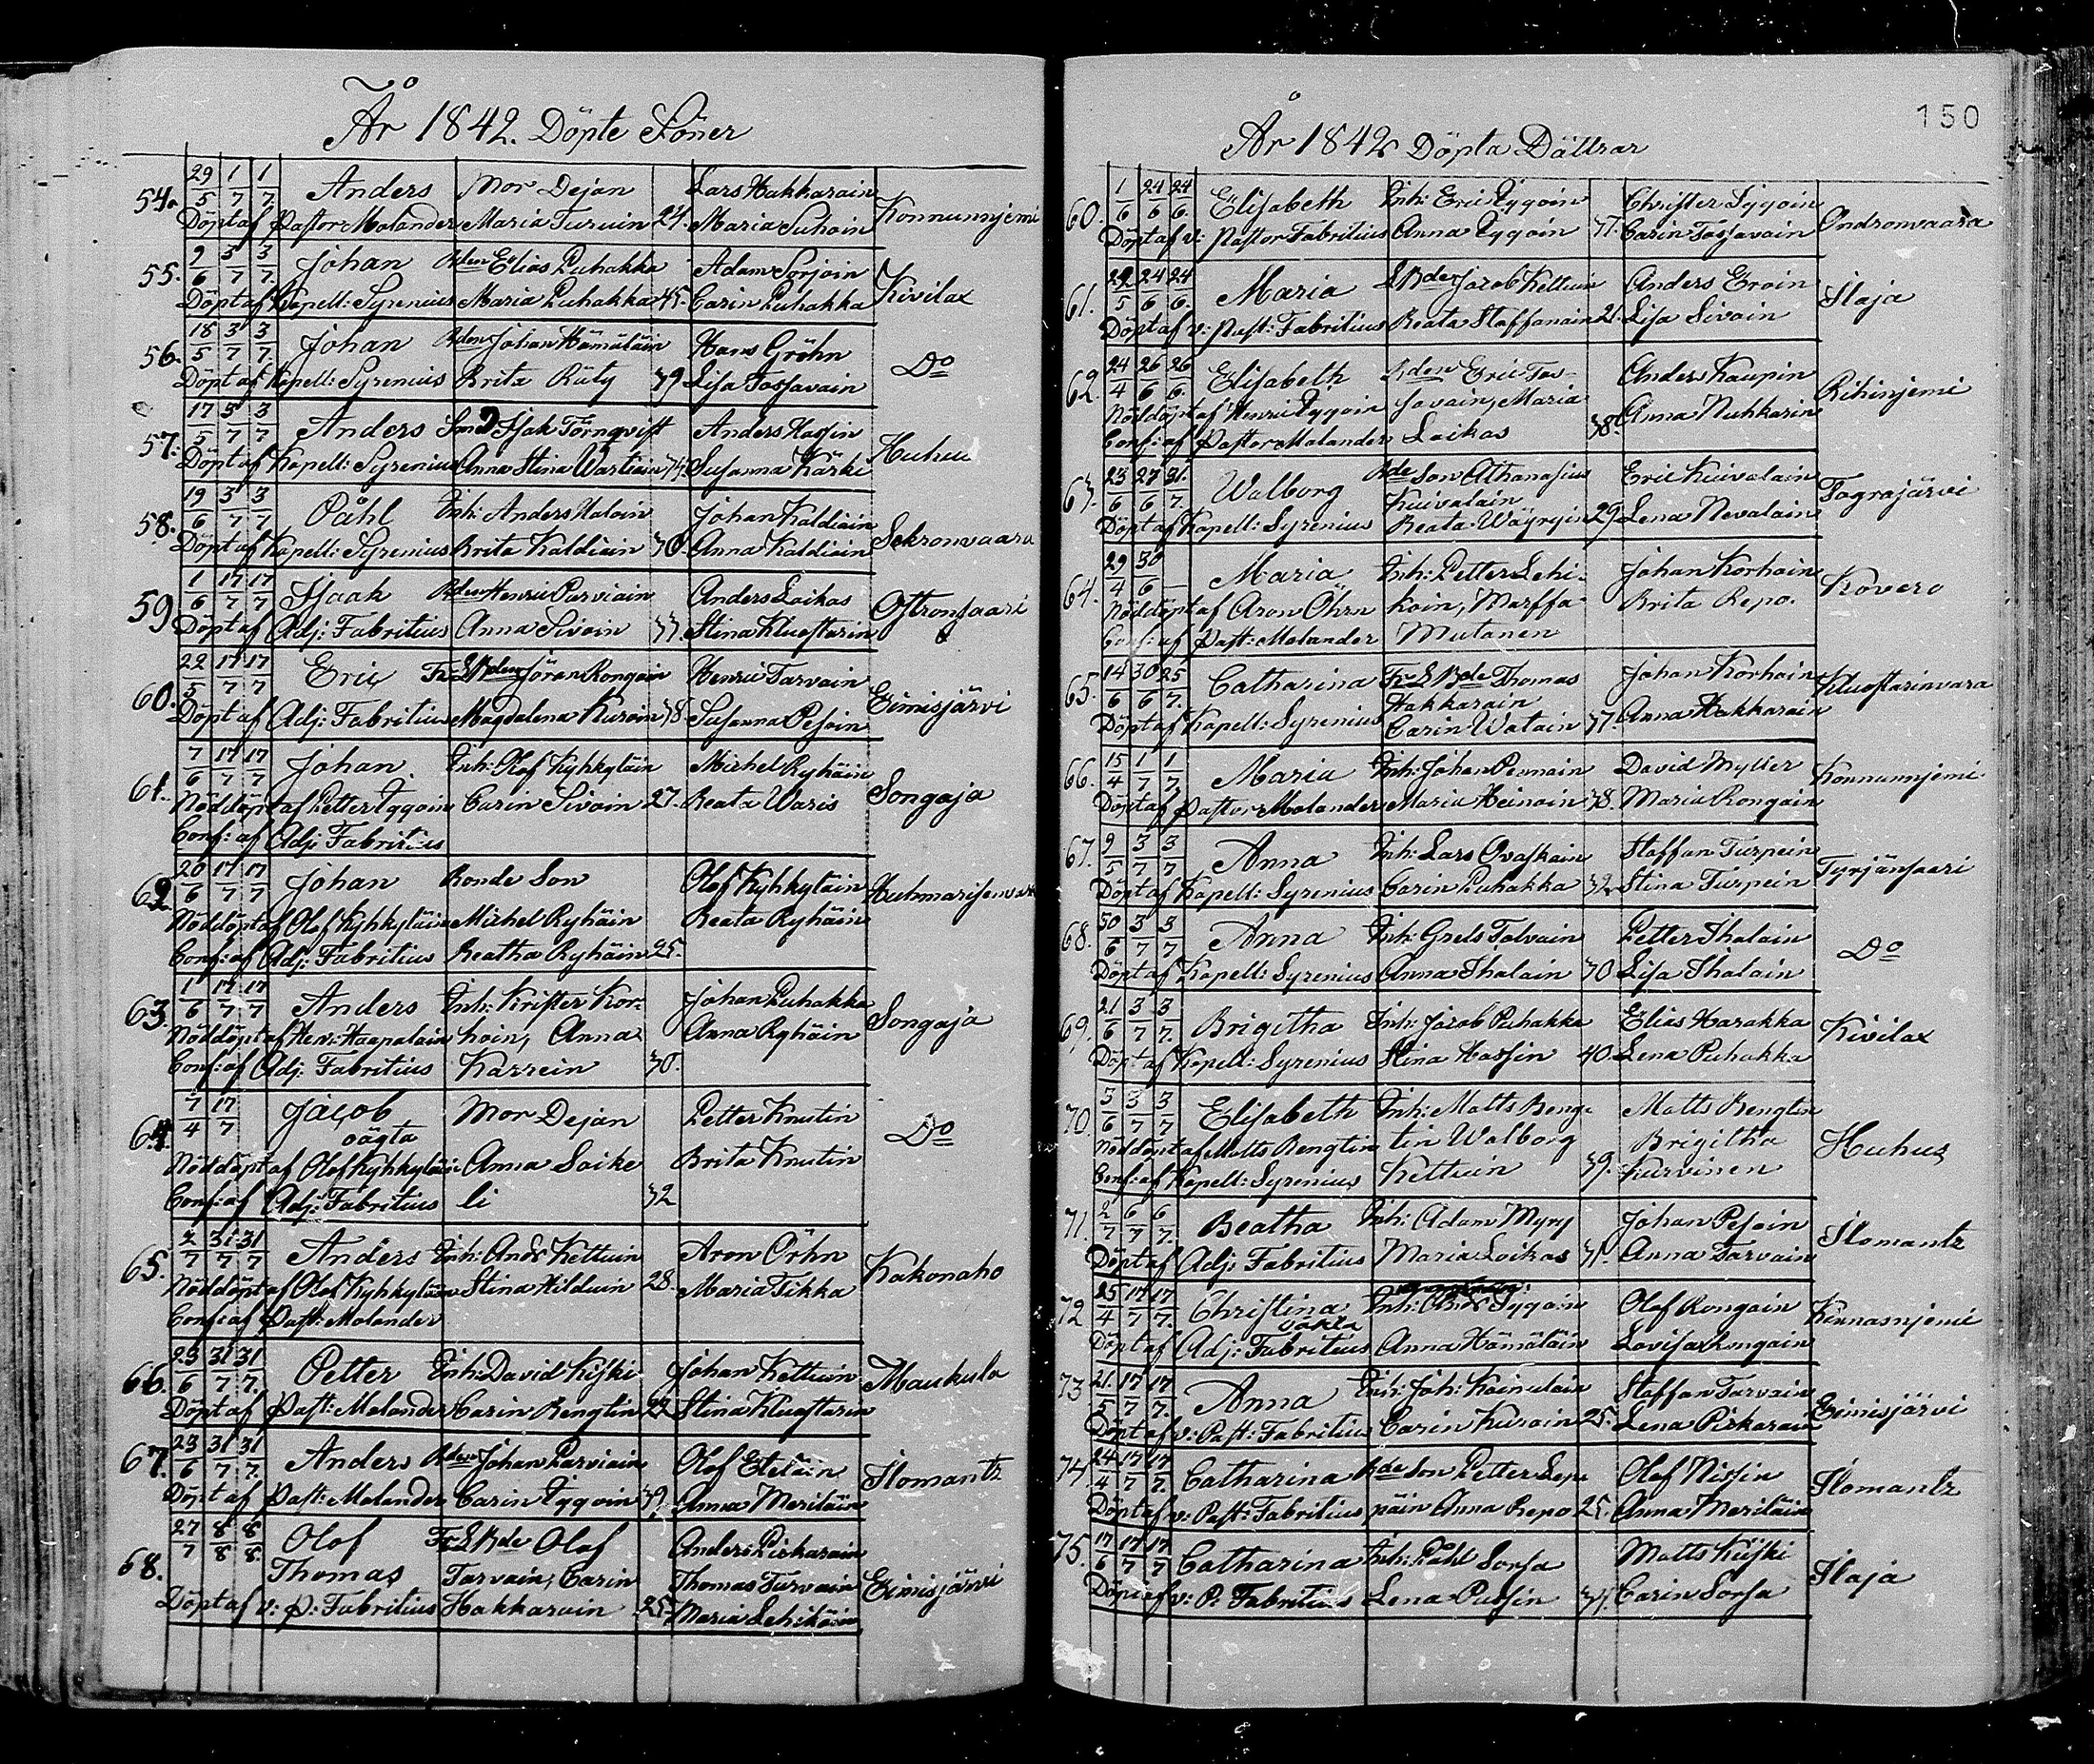 År 1842. Döpte Söner
54. 29/5 1/7 1/7. Anders Mor Dejan Lars Hakkarain Konnunnjemi
Döpt af Pastor Molander Maria Turuin 24. Maria Suhoin
55. 9/6 3/7 3/7. Johan Bden Elias Puhakka Adam Sorjoin Kivilax
Döpt af Kapell: Syrenius Maria Puhakka 45. Carin Puhakka
56. 18/5 3/7 3/7. Johan Bden Johan Hämäläin Hans Gröhn Do
Döpt af Kapell: Syrenius Brita Räty 39 Lisa Tossavain
57. 17/5 3/7 3/7 Anders Isak Törnqvist Anders Hassin Huhus
Döpt af Kapell: Syrenius Anna Stina Wartiain 34. Susanna Kärki
58. 19/6 3/7 3/7 Påhl Inh: Anders Haloin Johan Kaldiain Sekronvaara
Döpt af Kapell: Syrenius Brita Kaldiain 30. Anna Kaldiain
59 1/6 17/7 17/7 Isaak Bden Henric Parviain Anders Laikas Oftronsaari
Döpt af Adj: Fabritius Anna Sivoin 33 Stina Kluostarin
60. 22/5 17/7 17/7 Eric Jöran Rongain Henric Tarvain Eimisjärvi
Döpt af Adj: Fabritius Magdalena Kuroin 38. Susanna Pesoin
61. 7/6 17/7 17/7 Johan. Inh: Olof Kyhkytäin Michel Ryhäin Songaja
Nöddöpt af Petter Eggoin Carin Sivoin 27. Beata Waris
Conf: af Adj. Fabritius
62. 20/6 17/7 17/7 Johan Bonde Son Olof Kyhkytäin
Nöddöpt af Olof Kyhkytäin Michel Ryhäin Beata Ryhäin
Conf: af Adj: Fabritius Beatha Ryhäin 25.
63. 1/6 17/7 17/7 Anders Inh: Krister Kor- Johan Puhakka Songaja
Nöddöpt af Henr: Haapalain hoin, Anna Anna Ryhäin
Conf: af Adj: Fabritius Karrein 30.
64. 7/4 17/7 Jacob Mor Dejan Petter Knutin Do
oägta
Nöddöpt af Olof Kyhkytäin Anna Saike Brita Knutin
Conf: af Adj: Fabritius li 32
65. 2/7 31/7 31/7 Anders Inh: Ands Kettuin Aron Öhrn Kakonaho
Nöddöpt af Olof Kyhkytäin Stina Hilduin 28. Maria Tikka
Conf: af Past: Molander
66. 23/6 31/7 31/7. Petter Inh: David Kiiski Johan Kettuin Maukula
Döpt af Past: Molander Carin Bengtin Stina Kluostarin
67. 23/6 31/7 31/7. Anders Bden Johan Parviain Olof Eteläin Ilomantz
Döpt af Past: Molander Carin Eggoin 39. Anna Meriläin
68. 27/7 8/8 8/8. Olof Olof Anders Piskarain Eimisjärvi
Thomas Tarvain, Carin Thomas Turvain
Döpt af v: P: Fabritius Hakkarain 25. Maria Lehikäin
150
År 1842 Döpta Döttrar
60. 1/6 24/6 24/6. Elisabeth Inh: Eric Eggoin Christer Eggoin Ondronvaara
Döpt af v: Pastor Fabritius Anna Eggoin 37. Carin Tossavain
61. 29/5 24/6 24/6. Maria Jacob Kettuin Anders Eroin Ilaja
Döpt af v: Past: Fabritius Beata Staffanain 21. Lisa Sivoin
62. 24/4 26/6 26/6. Elisabeth Bden Eric Tos- Anders Kaupin Rihinjemi
Nöddöpt af Henric Eggoin savain, Maria Anna Nuhkarin
Conf: af Pastor Molander Laikas 38.
63. 23/6 27/6 31/7. Walborg Bde Son Athanasius Eric Kuivalain Tograjärvi
Kuivalain
Döpt af Kapell: Syrenius Beata Wäyryin 29. Lena Nevalain
64. 29/4 30/6 – Maria Inh: Petter Lehi- Johan Korhoin Kovero
Nöddöpt af Aron Öhrn koin, Marffa Brita Repo.
Conf: af Past: Molander Mutanen
65. 14/6 30/6 25/7. Catharina Thomas Johan Korhoin Kluostarinvara
Hakkarain
Döpt af Kapell: Syrenius Carin Watain 37. Anna Hakkarain
66. 15/4 1/7 1/7. Maria Inh: Johan Pennain David Myller Konnunnjemi
Döpt af Pastor Molander Maria Heinoin 38. Maria Rongain
67. 9/5 3/7 3/7 Anna Inh: Lars Ovaskain Staffan Turpein Tyrjänsaari
Döpt af Kapell: Syrenius Carin Puhakka 32 Stina Turpein
68. 3/7 3/7 Anna Inh: Grels Tolvain Petter Ihalain Do
Döpt af Kapell: Syrenius Anna Ihalain 30. Lisa Ihalain
69. 21/6 3/7 3/7. Brigitha Inh: Jacob Puhakka Elias Harakka Kivilax
Döpt af Kapell: Syrenius Stina Hassin 40. Lena Puhakka
70. 3/6 3/7 3/7 Elisabeth Inh: Matts Beng- Matts Bengtin Huhus
Nöddöpt af Matts Bengtin tin Walborg Brigitha
Conf: af Kapell: Syrenius Kettuin 39. Kurvinen
71. 2/7 6/7 6/7. Beatha Inh: Adam Myry Johan Pesoin Ilomantz
Döpt af Adj: Fabritius Maria Loikas Anna Tarvain
72 25/4 17/7 17/7. Christina Inh: Ands Eggoin Olof Rongain Kinnasnjemi
Döpt af Adj: Fabritius Anna Hämäläin Lovisa Rongain
73 21/5 17/7 17/7. Anna Inh: Joh: Kainulain Staffan Turvain Eimisjärvi
Döpt af v: Past: Fabritius Carin Kuroin 25. Lena Piskarain
74. 24/4 17/7 17/7. Catharina Bde Son Petter Lep- Olof Nissin Ilomantz
Döpt af v: Past: Fabritius päin Anna Repo 25. Anna Meriläin
75. 17/6 17/7 17/7 Catharina Inh: Påhl Sorsa Matts Kiiski Ilaja
Döpt af v: P. Fabritius Lena Pussin Carin Sorsa